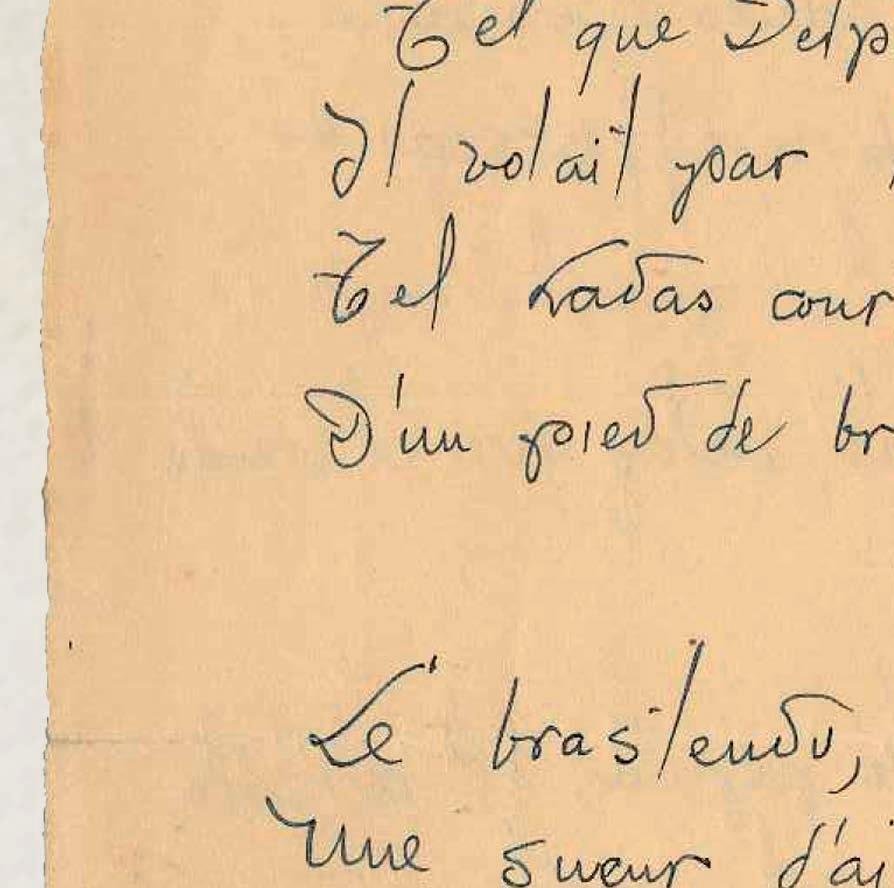 Tel que Delp
Il volait par
Tel Ladas cour
D'un pied de br
Le bras tendu,
Une sueur d'ai